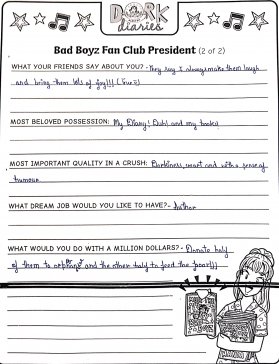 DORK
diaries
Bad Boyz Fan Club President (2 of 2)
WHAT YOUR FRIENDS SAY ABOUT YOU? - They say I always make them laugh
and bring them lots of joy!!! (True =)
MOST BELOVED POSSESSION: My Diary! Duh! and my books!
MOST IMPORTANT QUALITY IN A CRUSH: Darkness, smart and with a sense of
humour
WHAT DREAM JOB WOULD YOU LIKE TO HAVE? - Author
WHAT WOULD YOU DO WITH A MILLION DOLLARS? - Donate half
of them to and the other half to feed the poor!!!